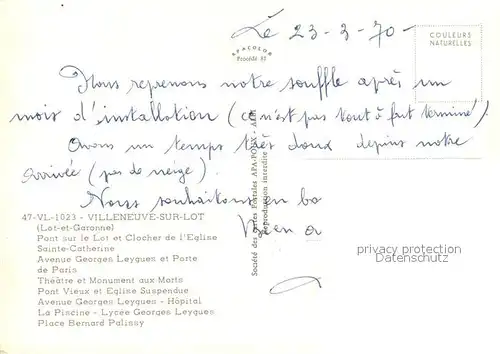 Le 23-3-70-
APACOLOR
Procédé 81
COULEURS
NATURELLES
Nous reprenons notre souffle après un
mois d'installation (ce n'est pas tout à fait terminé!)
Avons un temps très doux depuis notre
arrivée (pas de neige).
Nous souhaitons en bo
Bien a
47-VL-1023 - VILLENEUVE-SUR-LOT
(Lot-et-Garonne)
Pont sur le Lot et Clocher de l'Eglise
Sainte-Catherine
Avenue Georges Leygues et Porte
de Paris
Théâtre et Monument aux Morts
Pont Vieux et Eglise Suspendue
Avenue Georges Leygues - Hôpital
La Piscine - Lycée Georges Leygues
Place Bernard Palissy
Société des Cartes Postales APA-POUX - ALBI
Reproduction interdite
privacy protection
Datenschutz